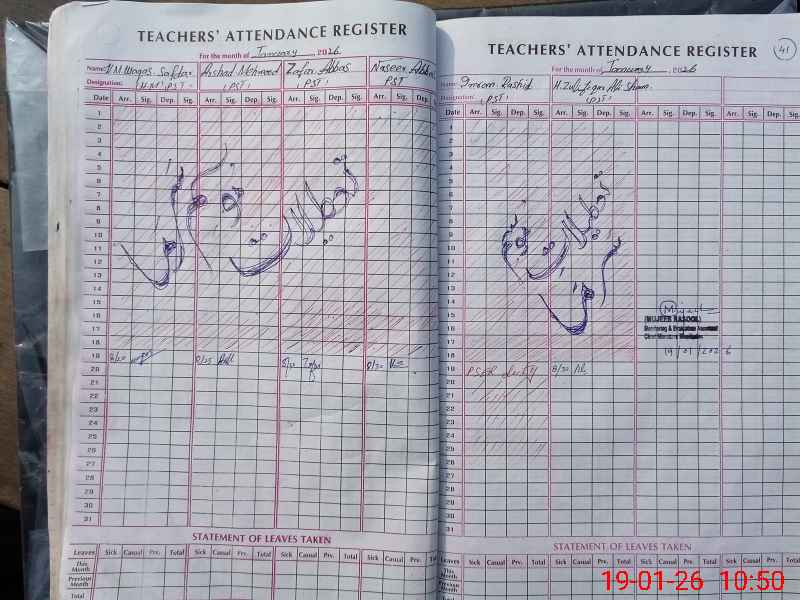 TEACHERS' ATTENDANCE REGISTER
For the month of January 2026
Name: M. Waqas Safdar Arshad Mehmood Zafar Abbas Naseer Abbas
Designation: PST PST PST
Date Arr. Sig. Dep. Sig. Arr. Sig. Dep. Sig. Arr. Sig. Dep. Sig. Arr. Sig. Dep. Sig.
1
2
3
4
5
6
7
8
9
10
11
12
13
14
15
16
17
18
19
20
21
22
23
24
25
26
27
28
29
30
31
تعطیلات
STATEMENT OF LEAVES TAKEN
Leaves Sick Casual Prv. Total Sick Casual Prv. Total Sick Casual Prv. Total Sick Casual Prv. Total
This Month
Previous Month
Total
TEACHERS' ATTENDANCE REGISTER 41
For the month of January 2026
Name: Imran Rashid H. Zulfiqar Ali
Designation: PST PST
Date Arr. Sig. Dep. Sig. Arr. Sig. Dep. Sig. Arr. Sig. Dep. Sig. Arr. Sig. Dep. Sig.
1
2
3
4
5
6
7
8
9
10
11
12
13
14
15
16
17
18
19 PSER duty 8/30
20
21
22
23
24
25
26
27
28
29
30
31
تعطیلات
(MUJEEB RASOOL)
Monitoring & Evaluation Assistant
19/01/2026
STATEMENT OF LEAVES TAKEN
Leaves Sick Casual Prv. Total Sick Casual Prv. Total Sick Casual Prv. Total
This Month
Previous Month
Total
19-01-26 10:50